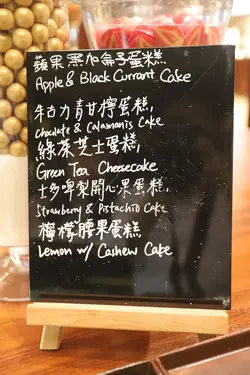 蘋果黑加侖子蛋糕
Apple & Black Currant Cake
朱古力青甘檸蛋糕,
Chocolate & Calamansis Cake
綠茶芝士蛋糕,
Green Tea Cheesecake
士多啤梨開心果蛋糕,
Strawberry & Pistachio Cake
檸檬腰果蛋糕
Lemon w/ Cashew Cake